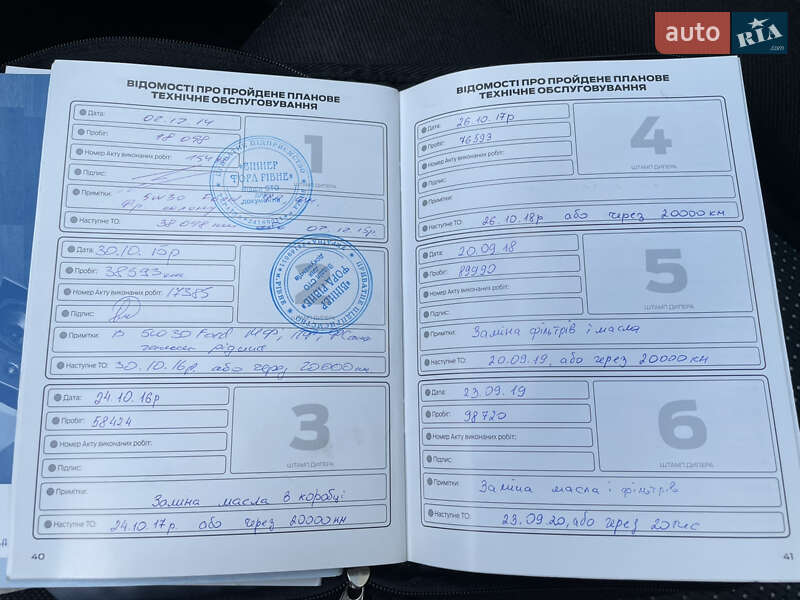 auto RIA.com
ВІДОМОСТІ ПРО ПРОЙДЕНЕ ПЛАНОВЕ
ТЕХНІЧНЕ ОБСЛУГОВУВАННЯ
Дата: 02.12.14
Пробіг: 18 098
Номер Акту виконаних робіт:
Підпис:
Примітки: 5W30
Наступне ТО: 38 098 км 02.12.15р
1
ШТАМП ДИЛЕРА
"ВІННЕР
ФОРД РІВНЕ"
відділ СТО
для
документів
Дата: 30.10.15р
Пробіг: 38593 км
Номер Акту виконаних робіт: 17385
Підпис:
Примітки: В 5W30 Ford МФ, ПФ,
гальм рідина
Наступне ТО: 30.10.16р. або через 20000 км
"ВІННЕР
ФОРД РІВНЕ"
відділ СТО
для
документів
Дата: 24.10.16р
Пробіг: 58424
Номер Акту виконаних робіт:
Підпис:
Примітки:
Заміна масла в коробці
Наступне ТО: 24.10.17р. або через 20000 км
3
ШТАМП ДИЛЕРА
40
ВІДОМОСТІ ПРО ПРОЙДЕНЕ ПЛАНОВЕ
ТЕХНІЧНЕ ОБСЛУГОВУВАННЯ
Дата: 26.10.17р
Пробіг: 76593
Номер Акту виконаних робіт:
Підпис:
Примітки:
Наступне ТО: 26.10.18р або через 20000 км
4
ШТАМП ДИЛЕРА
Дата: 20.09.18
Пробіг: 89990
Номер Акту виконаних робіт:
Підпис:
Примітки: Заміна фільтрів і масла
Наступне ТО: 20.09.19, або через 20000 км
5
ШТАМП ДИЛЕРА
Дата: 23.09.19
Пробіг: 98720
Номер Акту виконаних робіт:
Підпис:
Примітки: Заміна масла і фільтрів
Наступне ТО: 23.09.20, або через 20 тис
6
ШТАМП ДИЛЕРА
41